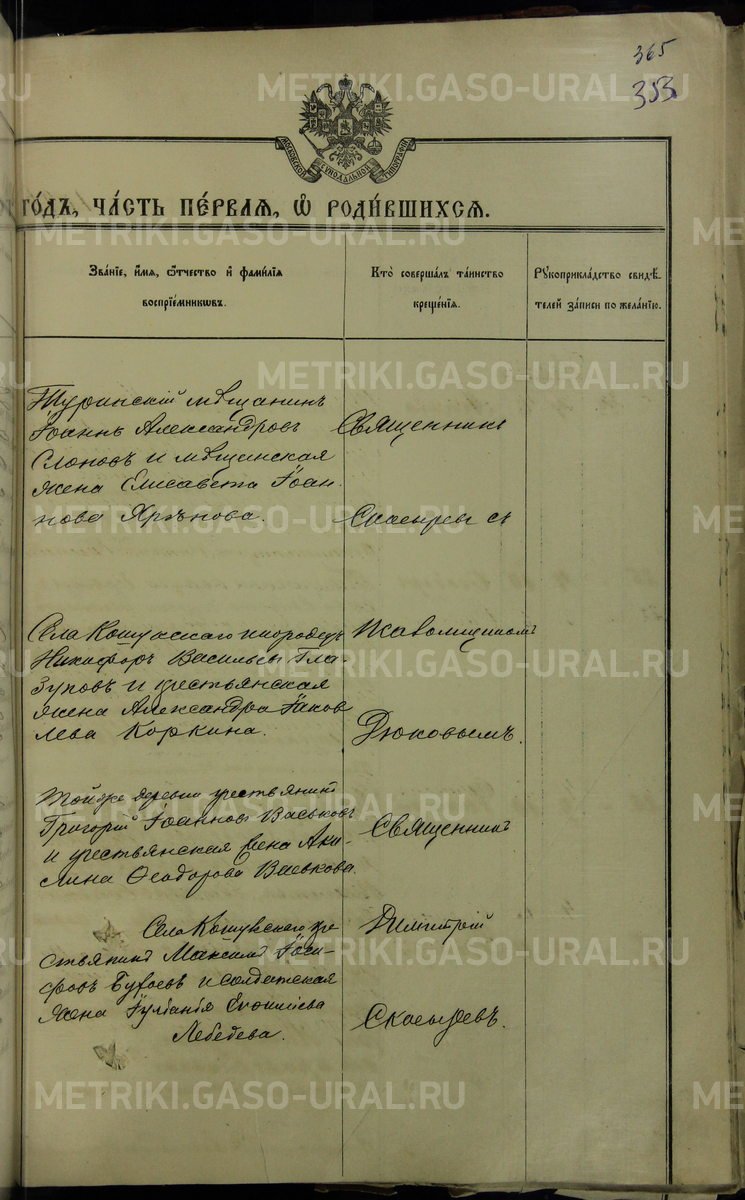 365
353
METRIKI.GASO-URAL.RU
МОСКОВСКОЙ СѴНОДАЛЬНОЙ ТИПОГРАФІИ
го́дъ, ча́сть пе́рваѧ, ѡ҆ роди́вшихсѧ.
Зва́нїе, и҆́мѧ, ѻ҆́тчество и҆ фами́лїѧ
воспрїе́мникѡвъ.
Кто̀ соверша́лъ та́инство
креще́нїѧ.
Рꙋкоприкла́дство свидѣ́-
телей за́писи по жела́нїю.
Туринскій мѣщанинъ
Іоаннъ Александровъ
Слоновъ и мѣщанская
жена Елисавета Іоан-
нова
Священникъ
Скосыревъ съ
Села Кошукскаго инородецъ
Никифоръ Васильевъ Гла-
зуновъ и крестьянская
жена Александра Іаков
лева Коркина.
Псаломщикомъ
Дюковымъ.
Тойже деревни крестьянинъ
Григорій Іоанновъ Васьковъ
и крестьянская жена Аки-
лина Ѳеодорова Васькова.
Священникъ
Села Кошукскаго кре
стьянинъ Максимъ Іоси-
фовъ и солдатская
жена Іуліанія
Лебедева.
Димитрій
Скосыревъ.